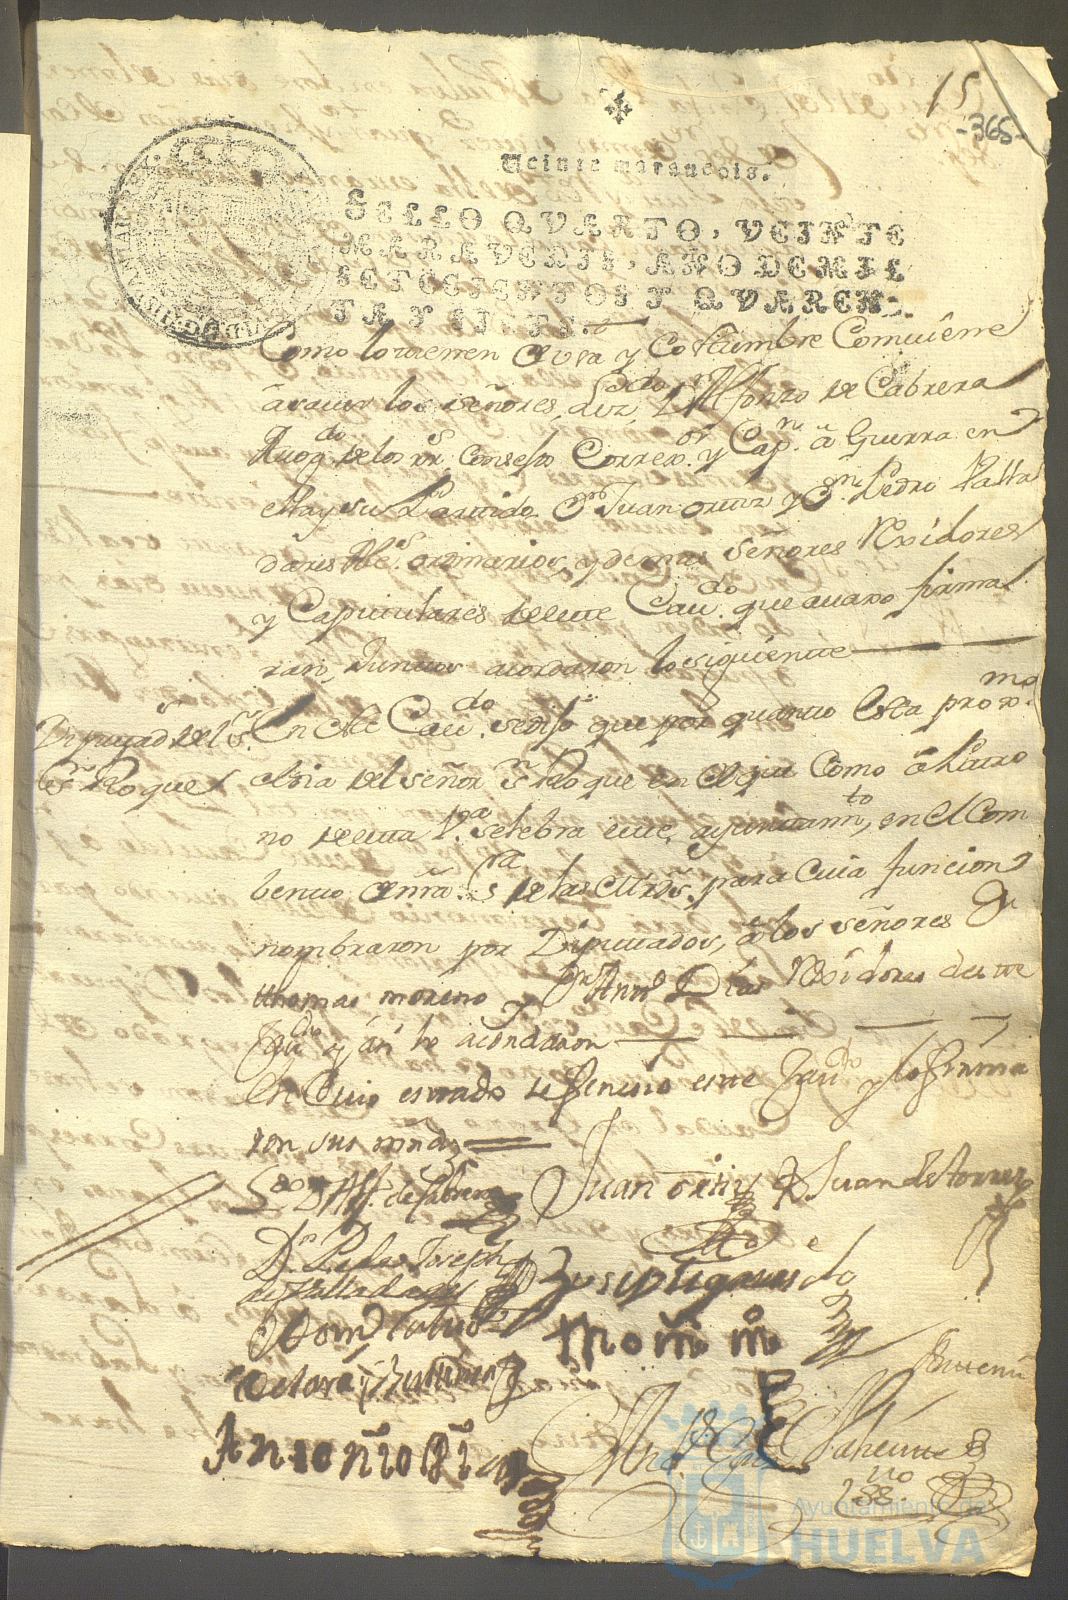 15
-365-
Veinte marauedis.
SELLO QVARTO, VEINTE
MARAVEDIS, AÑO DE MIL
SETECIENTOS Y QVAREN-
TA Y
Como lo tienen de uso y Costumbre Comuiene
asauer los señores Lizdo Dn Alfonzo de Cabrera
Auogdo de los rs. Consejos Correxor y Capn a Guerra en
esta y su Partido Dn Juan ortiz y Dn Pedro Valla
dares Alces ordinarios, y demas señores Rexidores
y Capitulares deeste Caudo que auaxo firma
ran, Juntos acordaron lo siguiente
Diputados del Sr
Sn Roque
En este Caudo se dijo que por quanto esta proxmo
el dia del señor Sn Roque en el que Como a Patro
no deesta Va selebra este ayuntamto, en el Com
bento de nra Sra de las Mrds, para Cuia funcion
nombraron por Diputados, a los señores Dn
thomas moreno y Dn Anto Dias Rexidores deeste
Caudo y asi lo acordaron
En Cuio estado se fenecio este Caudo y lo firma
ron sus mrds
Lzdo Dn Alf. de Cabrera
Juan ortiz
Juan de torres
Dn Pedro Joseph
de Valladares
Antonio Di
Ayuntamiento de
HUELVA